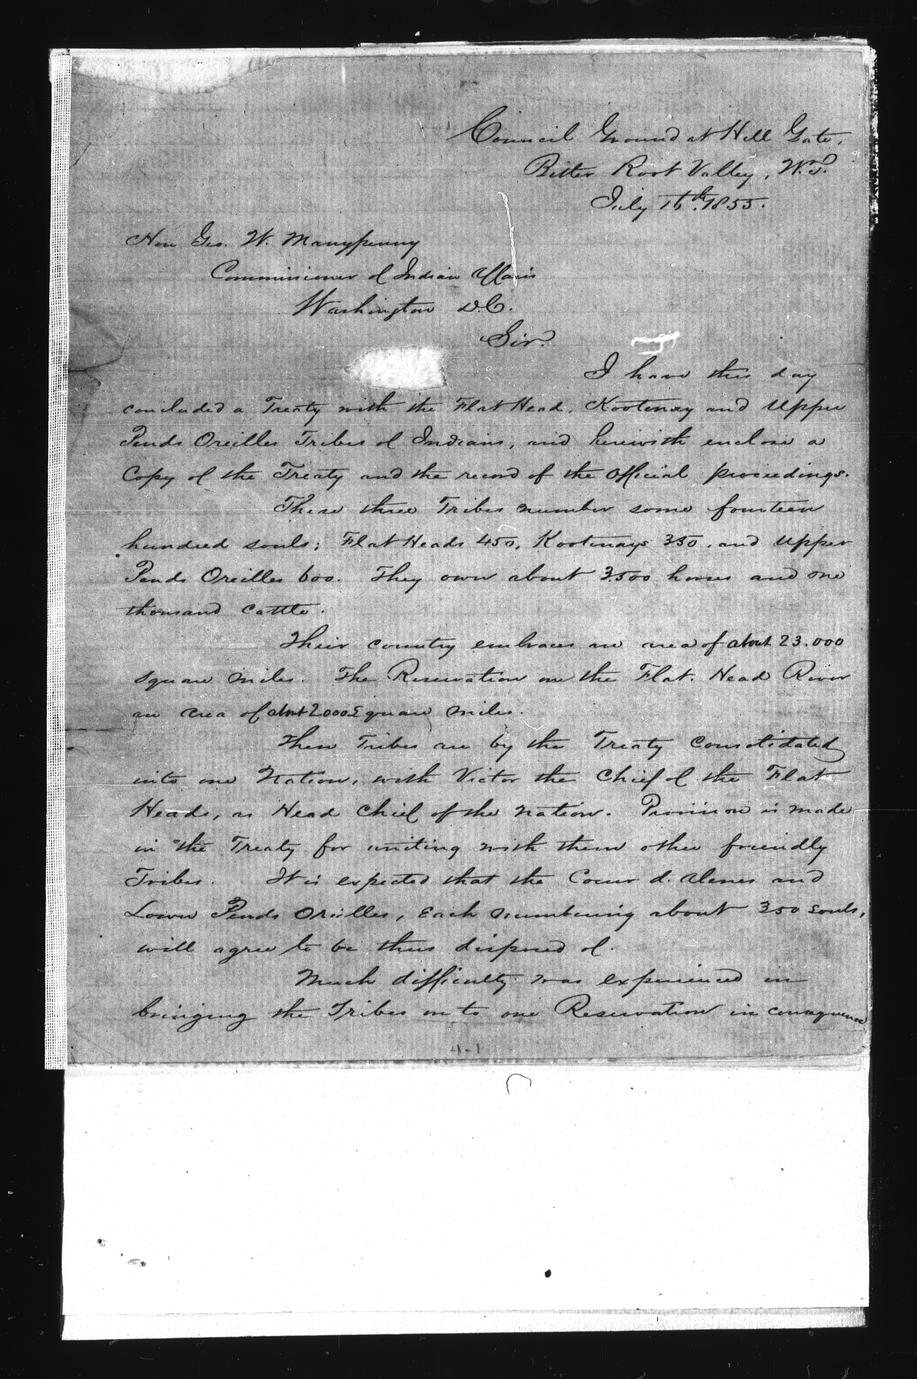 Council Ground at Hell Gate,
Bitter Root Valley, W.T.
July 16th. 1855.
Hon Geo. W. Manypenny
Commissioner of Indian Affairs
Washington D.C.
Sir.
I have this day
concluded a Treaty with the Flat Head, Kootenay and Upper
Pends Oreilles Tribes of Indians, and herewith enclose a
Copy of the Treaty and the record of the Official proceedings.
These three Tribes number some fourteen
hundred souls; Flat Heads 450, Kootenays 350, and Upper
Pends Oreilles 600. They own about 3500 horses and one
thousand cattle.
Their country embraces an area of about 23.000
square miles. The Reservation on the Flat. Head River
an area of about 2000 Square miles.
These Tribes are by the Treaty consolidated
into one Nation, with Victor the Chief of the Flat
Heads, as Head Chief of the nation. Provision is made
in the Treaty for uniting with them other friendly
Tribes. It is expected that the Coeur d. Alenes and
Lower Pends Oreilles, each numbering about 350 souls,
will agree to be thus disposed of.
Much difficulty was experienced in
bringing the Tribes on to one Reservation in consequence